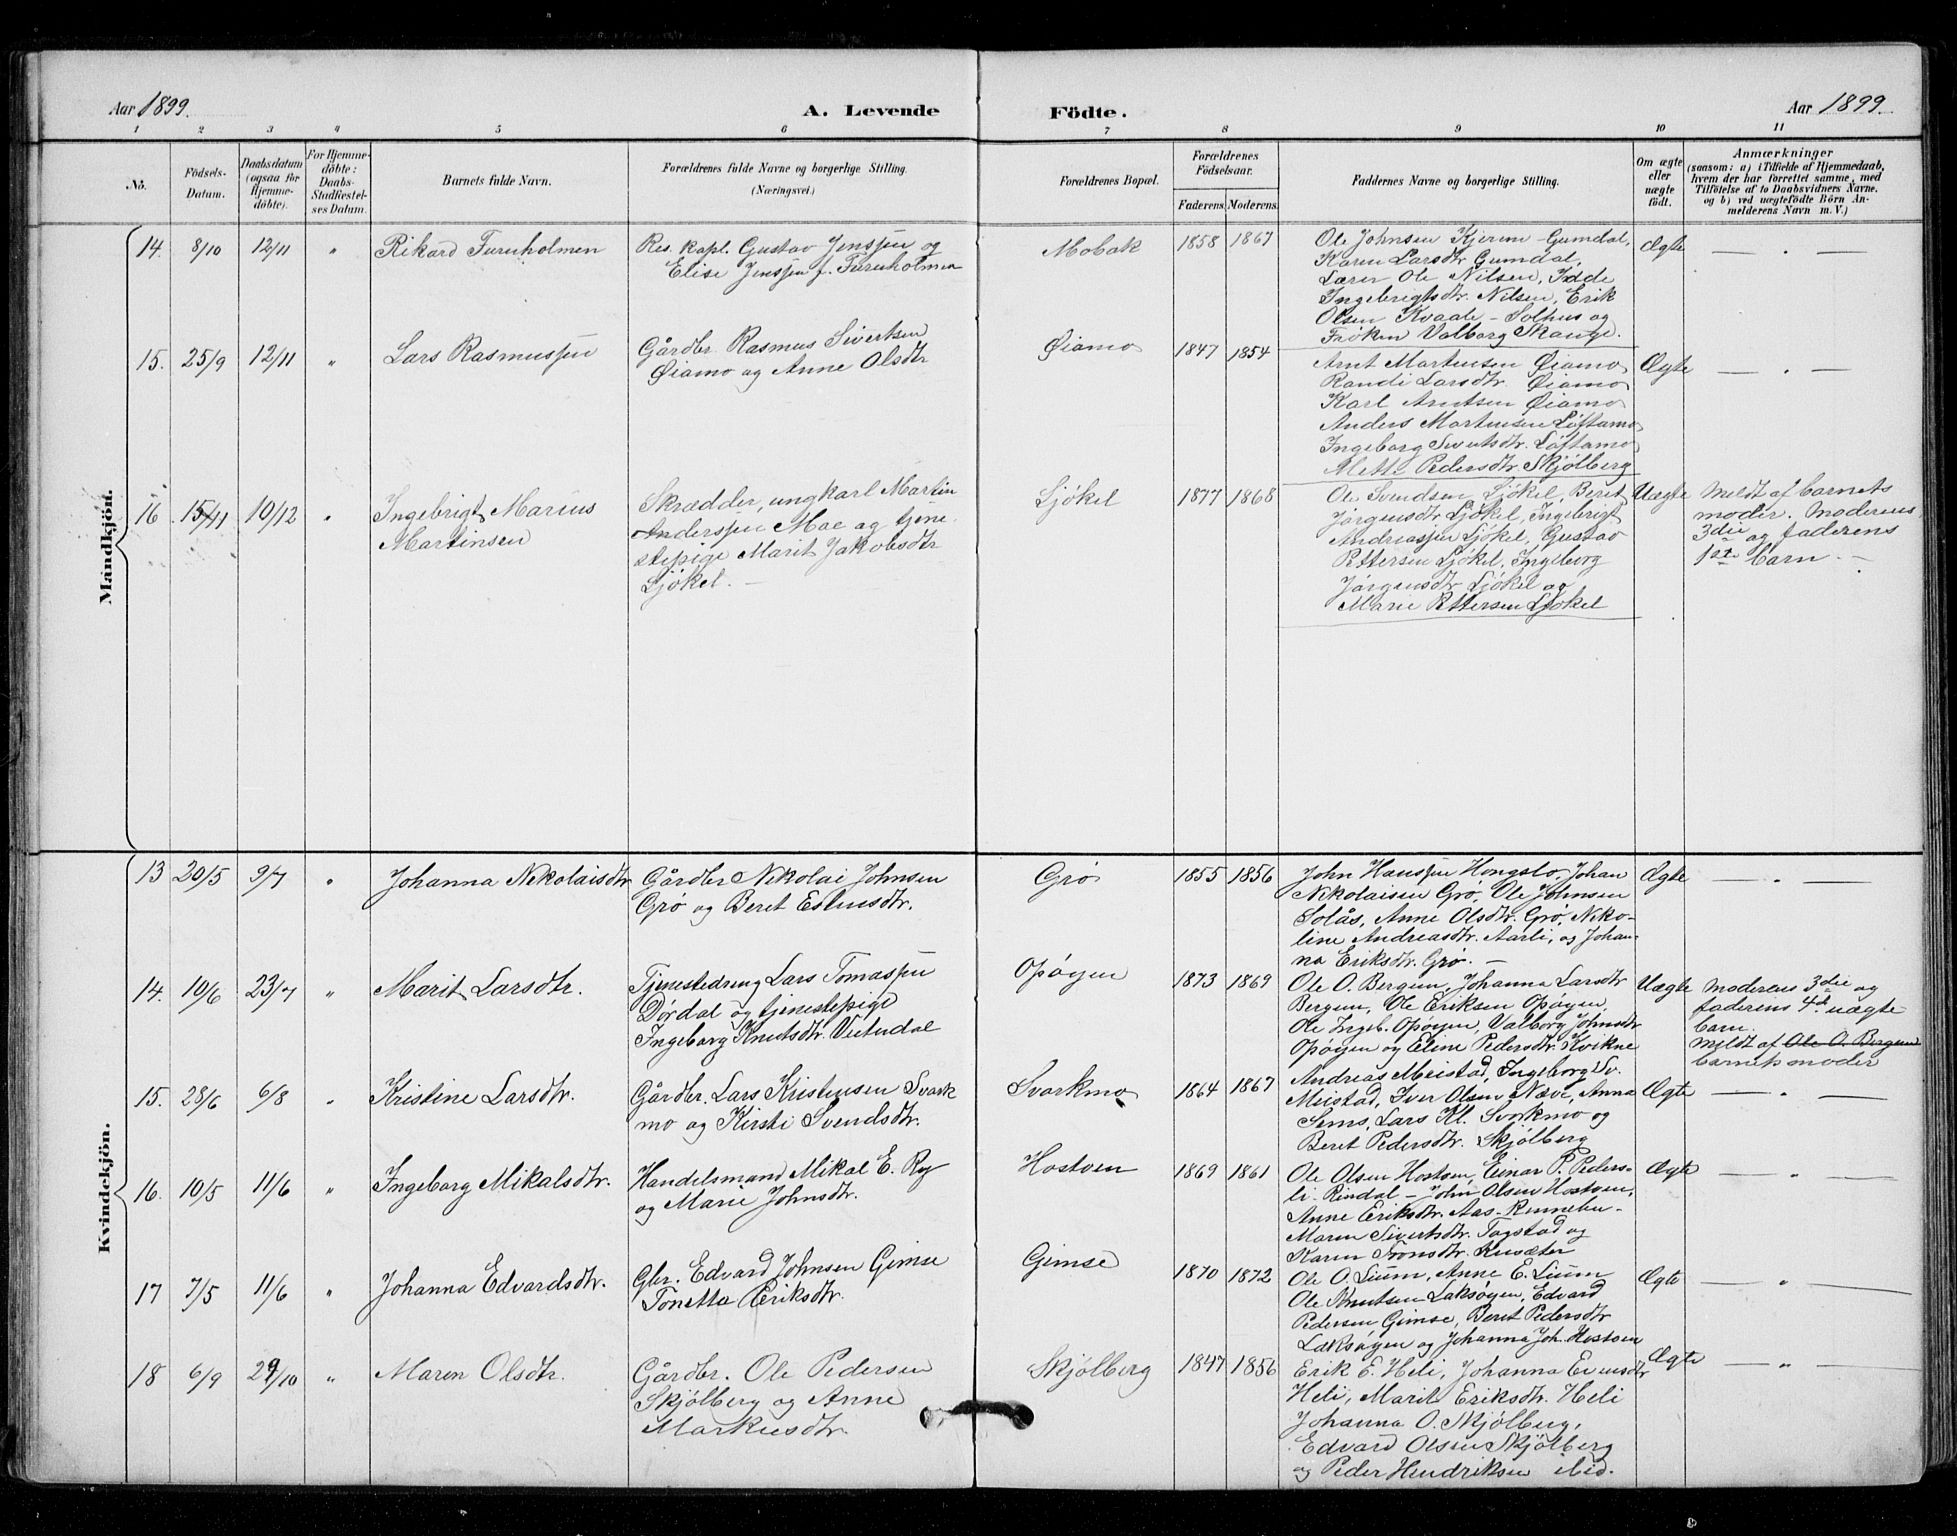 Aar 1899.
A. Levende Födte.
Aar 1899.
1 2 3 4 5 6 7 8 9 10 11
No.
Födsels-
Datum.
Daabsdatum
(ogsaa for
Hjemme-
döbte).
For Hjemme-
döbte:
Daabs-
Stadfæstel-
ses Datum.
Barnets fulde Navn.
Forældrenes fulde Navne og borgerlige Stilling.
(Næringsvei.)
Forældrenes Bopæl.
Forældrenes
Födselsaar.
Faderens. Moderens.
Faddernes Navne og borgerlige Stilling.
Om ægte
eller
uægte
födt.
Anmærkninger
(saasom: a) i Tilfælde af Hjemmedaab,
hvem der har forrettet samme, med
Tilföielse af to Daabsvidners Navne.
og b) ved uægtefödte Börn An-
melderens Navn m. V.)
Mandkjön.
14. 8/10 12/11 " Rikard Furuholmen
Res. kapl. Gustav Jenssen og
Elise Jenssen f. Furuholmen
Mobak 1858 1867
Ole Johnsen Kjerem - Gumdal,
Karen Larsdtr Gumdal,
Lærer Ole Nilsen, Idde
Ingebrigtsdtr. Nilsen, Erik
Olsen Kvaale - Solhus og
Frøken Valborg Skauge.
Ægte — " —
15. 25/9 12/11 " Lars Rasmussen
Gårdbr. Rasmus Sivertsen
Øiamo og Anne Olsdtr
Øiamo 1847 1854
Arnt Martinsen Øiamo
Randi Larsdtr. Øiamo
Karl Arntsen Øiamo
Anders Martinsen Løftamo
Ingeborg Sivertsdtr. Løftamo
Mette Pedersdtr Skjølberg
Ægte — " —
16 15/11 10/12 " Ingebrigt Marius
Martinsen
Skrædder, ungkarl Martin
Anderssen Moe og tjene-
stepige Marit Jakobsdtr
Ljøkel. —
Ljøkel 1877 1868
Ole Svendsen Ljøkel, Beret
Jørgensdtr Ljøkel, Ingebrigt
Andreassen Ljøkel, Gustav
Pettersen Ljøkel, Ingeborg
Jørgensdtr Ljøkel og
Marie Pettersen Ljøkel
Uægte
Meldt af barnets
moder. Moderens
3die og faderens
1ste barn. —
Kvindekjön.
13 20/5 9/7 " Johanna Nikolaisdtr
Gårdbr Nikolai Johnsen
Grø og Beret Estensdtr.
Grø 1855 1856
John Hanssen Hongslo, Johan
Nikolaisen Grø, Ole Johnsen
Solås, Anne Olsdtr. Grø, Niko-
line Andreasdtr. Aarli, og Johan-
na Eriksdtr. Grø. —
Ægte — " —
14. 10/6 23/7 " Marit Larsdtr.
Tjenestedreng Lars Tomassen
Dørdal og tjenestepige
Ingeborg Knutsdtr. Vutudal
Opøyen 1873 1869
Ole O. Bergun, Johanna Larsdtr
Bergun, Ole Eriksen Opøyen,
Ole Ingeb. Opøyen, Valborg Johnsdtr
Opøyen og Eline Pedersdtr. Kvikne
Uægte
Moderens 3die og
faderens 4de uægte
barn.
Meldt af Ole O. Bergun
barnets moder
15. 28/6 6/8 " Kristine Larsdtr.
Gårdbr. Lars Kristensen Svark
mo og Kirsti Svendsdtr.
Svarkmo 1864 1867
Andreas Meistad, Ingeborg Sv.
Meistad, Iver Olsen Næve, Anna
Sems, Lars Kl. Svorkmo og
Beret Pedersdtr. Skjølberg
Ægte — " —
16. 10/5 11/6 " Ingeborg Mikalsdtr.
Handelsmand Mikal E. Ry
og Marie Johnsdtr.
Hostoen 1869 1861
Ole Olsen Hostoen, Einar P. Peders-
li - Rindal - John Olsen Hostoen,
Anne Eriksdtr. Aas - Rennebu -
Maren Sivertsdtr. Togstad og
Karen Tronsdtr. Kusæter
Ægte — " —
17 7/5 11/6 " Johanna Edvardsdtr.
Gbr. Edvard Johnsen Gimse
Tonetta Eriksdtr.
Gimse 1870 1872
Ole O. Lium, Anne E. Lium
Ole Knutsen Laksøyen, Edvard
Pedersen Gimse, Beret Pedersdtr
Laksøyen og Johanna Joh. Hostoen
Ægte — " —
18 6/9 29/10 " Maren Olsdtr.
Gårdbr. Ole Pedersen
Skjølberg og Anne
Markusdtr.
Skjølberg 1847 1856
Erik E. Heli, Johanna Evensdtr
Heli, Marit Eriksdtr. Heli
Johanna O. Skjølberg,
Edvard Olsen Skjølberg
og Peder Hendriksen ibid.
Ægte — " —